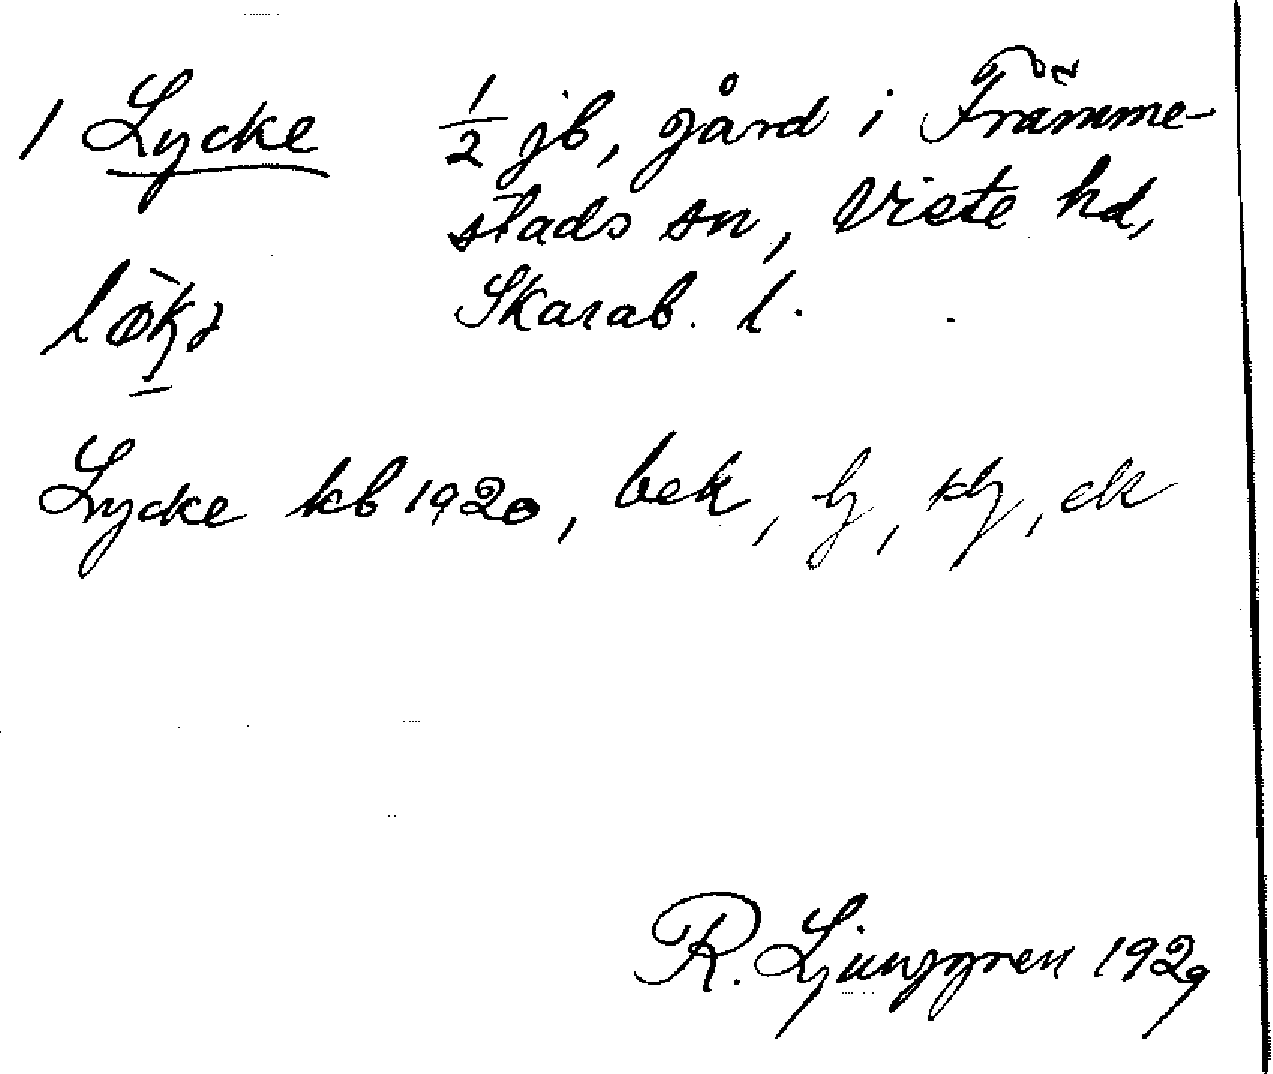 1 Lycke ½ jb, gård i Främme-
stads sn, Viste hd,
Skarab. l.
Lycke kb 1920, bek, lj, ek
R. Ljunggren 1929